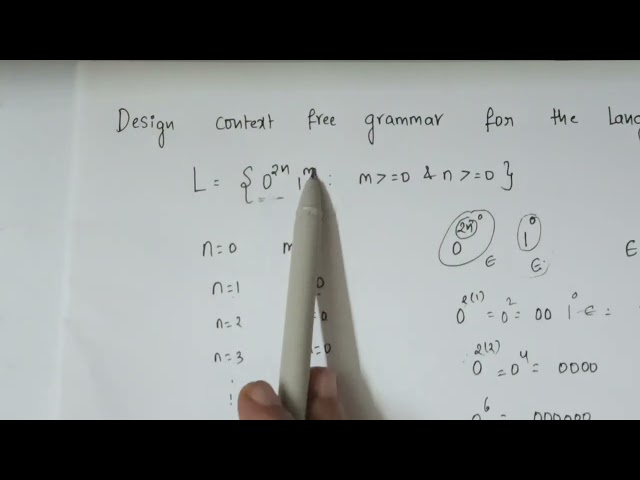 Design context free grammar for the Lang
L = { 0²ⁿ 1ᵐ : m>=0 & n>=0 }
0²ⁿ ⁰ 1⁰
n=0 m ε ε ε
n=1 0 0²⁽¹⁾ = 0² = 00 1⁰ ε =
n=2 =0 0²⁽²⁾ = 0⁴ = 0000
n=3 =0
0⁶ = 000000